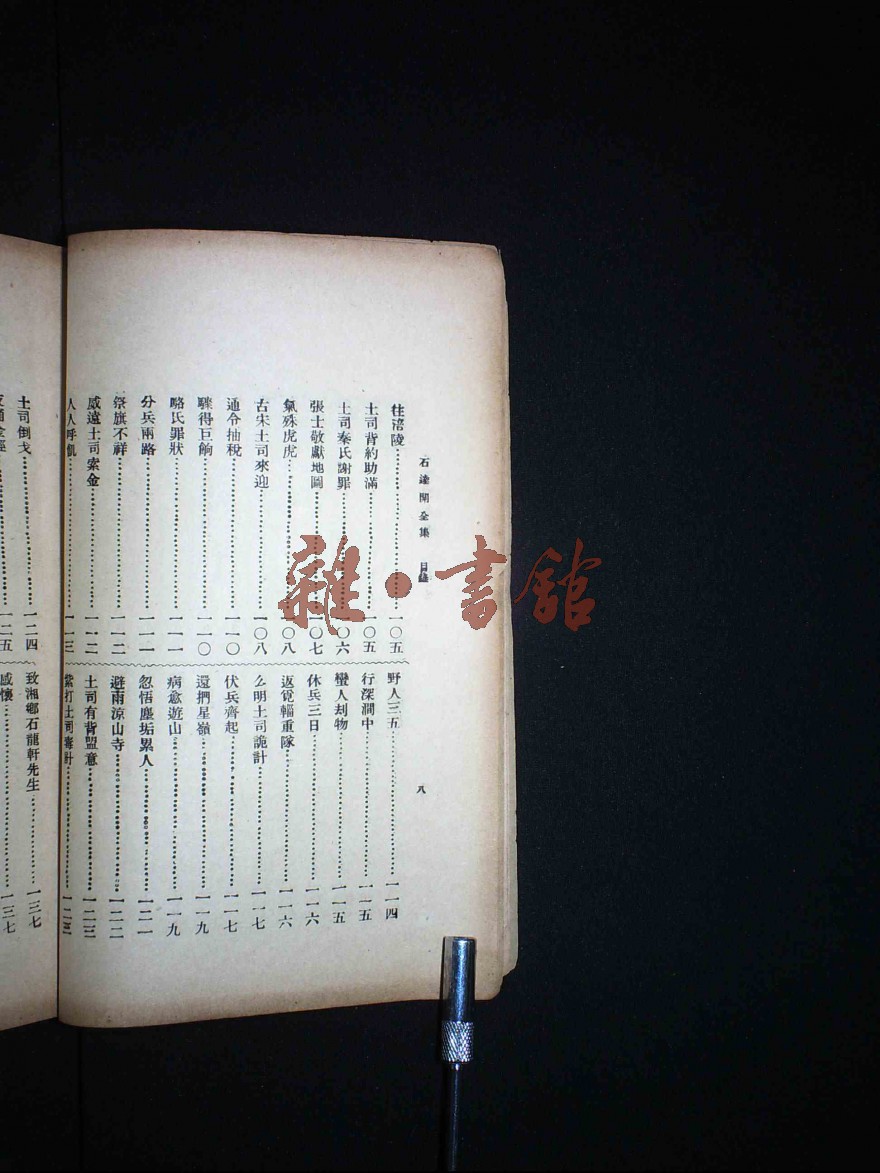 石達開全集　目錄
八
往涪陵…………一〇五
土司背約助滿…………一〇五
土司秦氏謝罪…………一〇六
張士敬獻地圖…………一〇七
氣殊虎虎…………一〇八
古宋土司來迎…………一〇八
通令抽稅…………一一〇
驟得巨餉…………一一〇
略氏罪狀…………一一一
分兵兩路…………一一一
祭旗不祥…………一一二
威遠土司索金…………一一二
人人呼飢…………一一三
野人三五…………一一四
行深澗中…………一一五
蠻人刦物…………一一五
休兵三日…………一一六
返覓輜重隊…………一一六
么明土司詭計…………一一七
伏兵齊起…………一一七
還捫星嶺…………一一九
病愈遊山…………一一九
忽悟塵垢累人…………一二一
避雨涼山寺…………一二二
土司有背盟意…………一二三
紫打土司毒計…………一二三
土司倒戈…………一二四
一二五
致湘鄉石龍軒先生…………一三七
感懷…………一三七
雜·書館